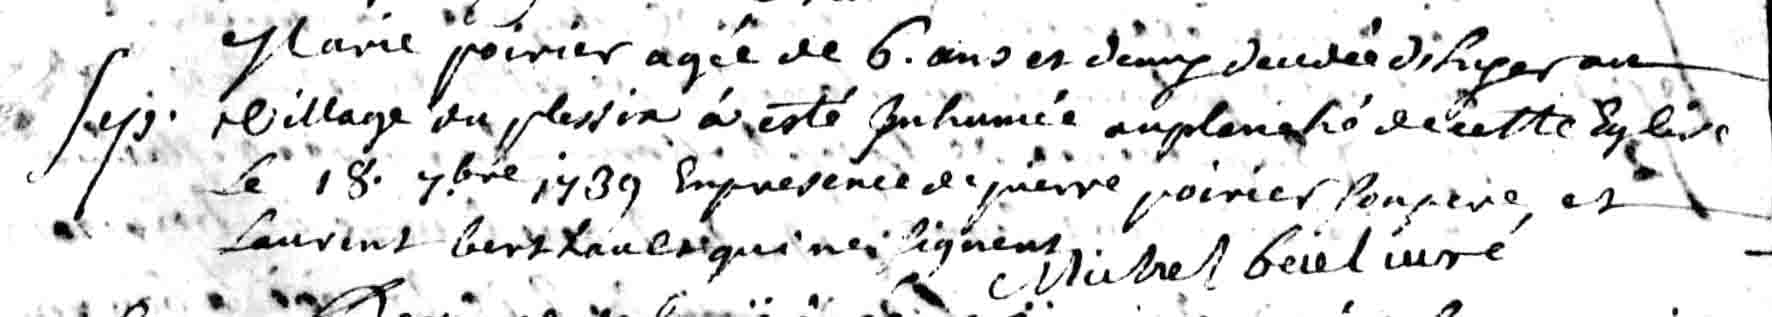 Marie poirier agée de 6. ans et demy decedée d'hyer au
Sep. village du plessix a esté Inhumée au planché de cette Eglise
Le 18. 7bre 1739 En presence de pierre poirier Son pere, et
Laurent berthault qui ne signent Michel curé